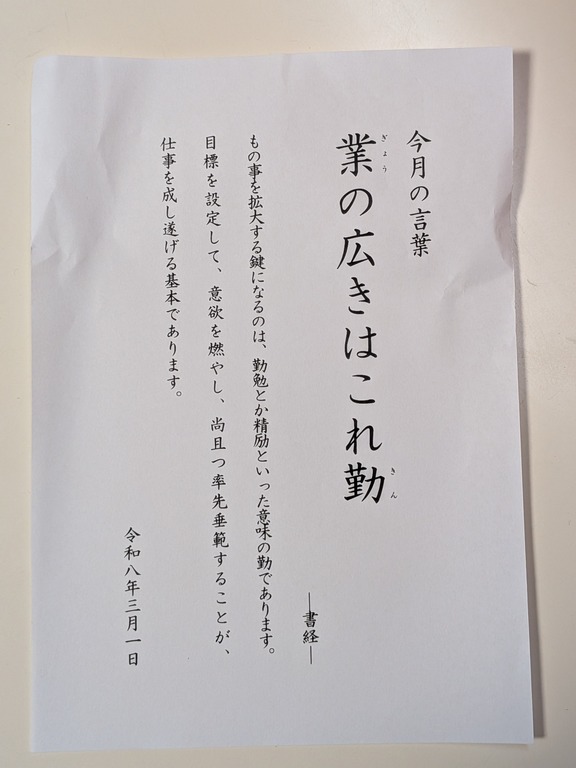 今月の言葉
業の広きはこれ勤
ぎょう
きん
―書経―
もの事を拡大する鍵になるのは、勤勉とか精励といった意味の勤であります。
目標を設定して、意欲を燃やし、尚且つ率先垂範することが、
仕事を成し遂げる基本であります。
令和八年三月一日